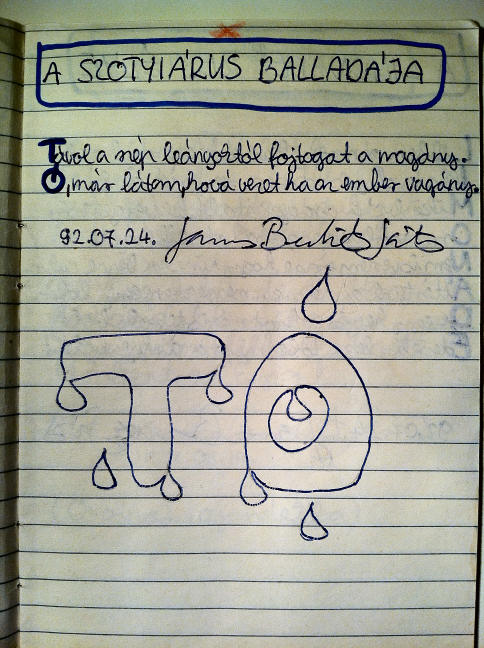 A SZOTYIÁRUS BALLADÁJA
Távol a szép leányoktól fojtogat a magány.
Ó, már látom, hová vezet ha az ember vagány.
92.07.24.
TO